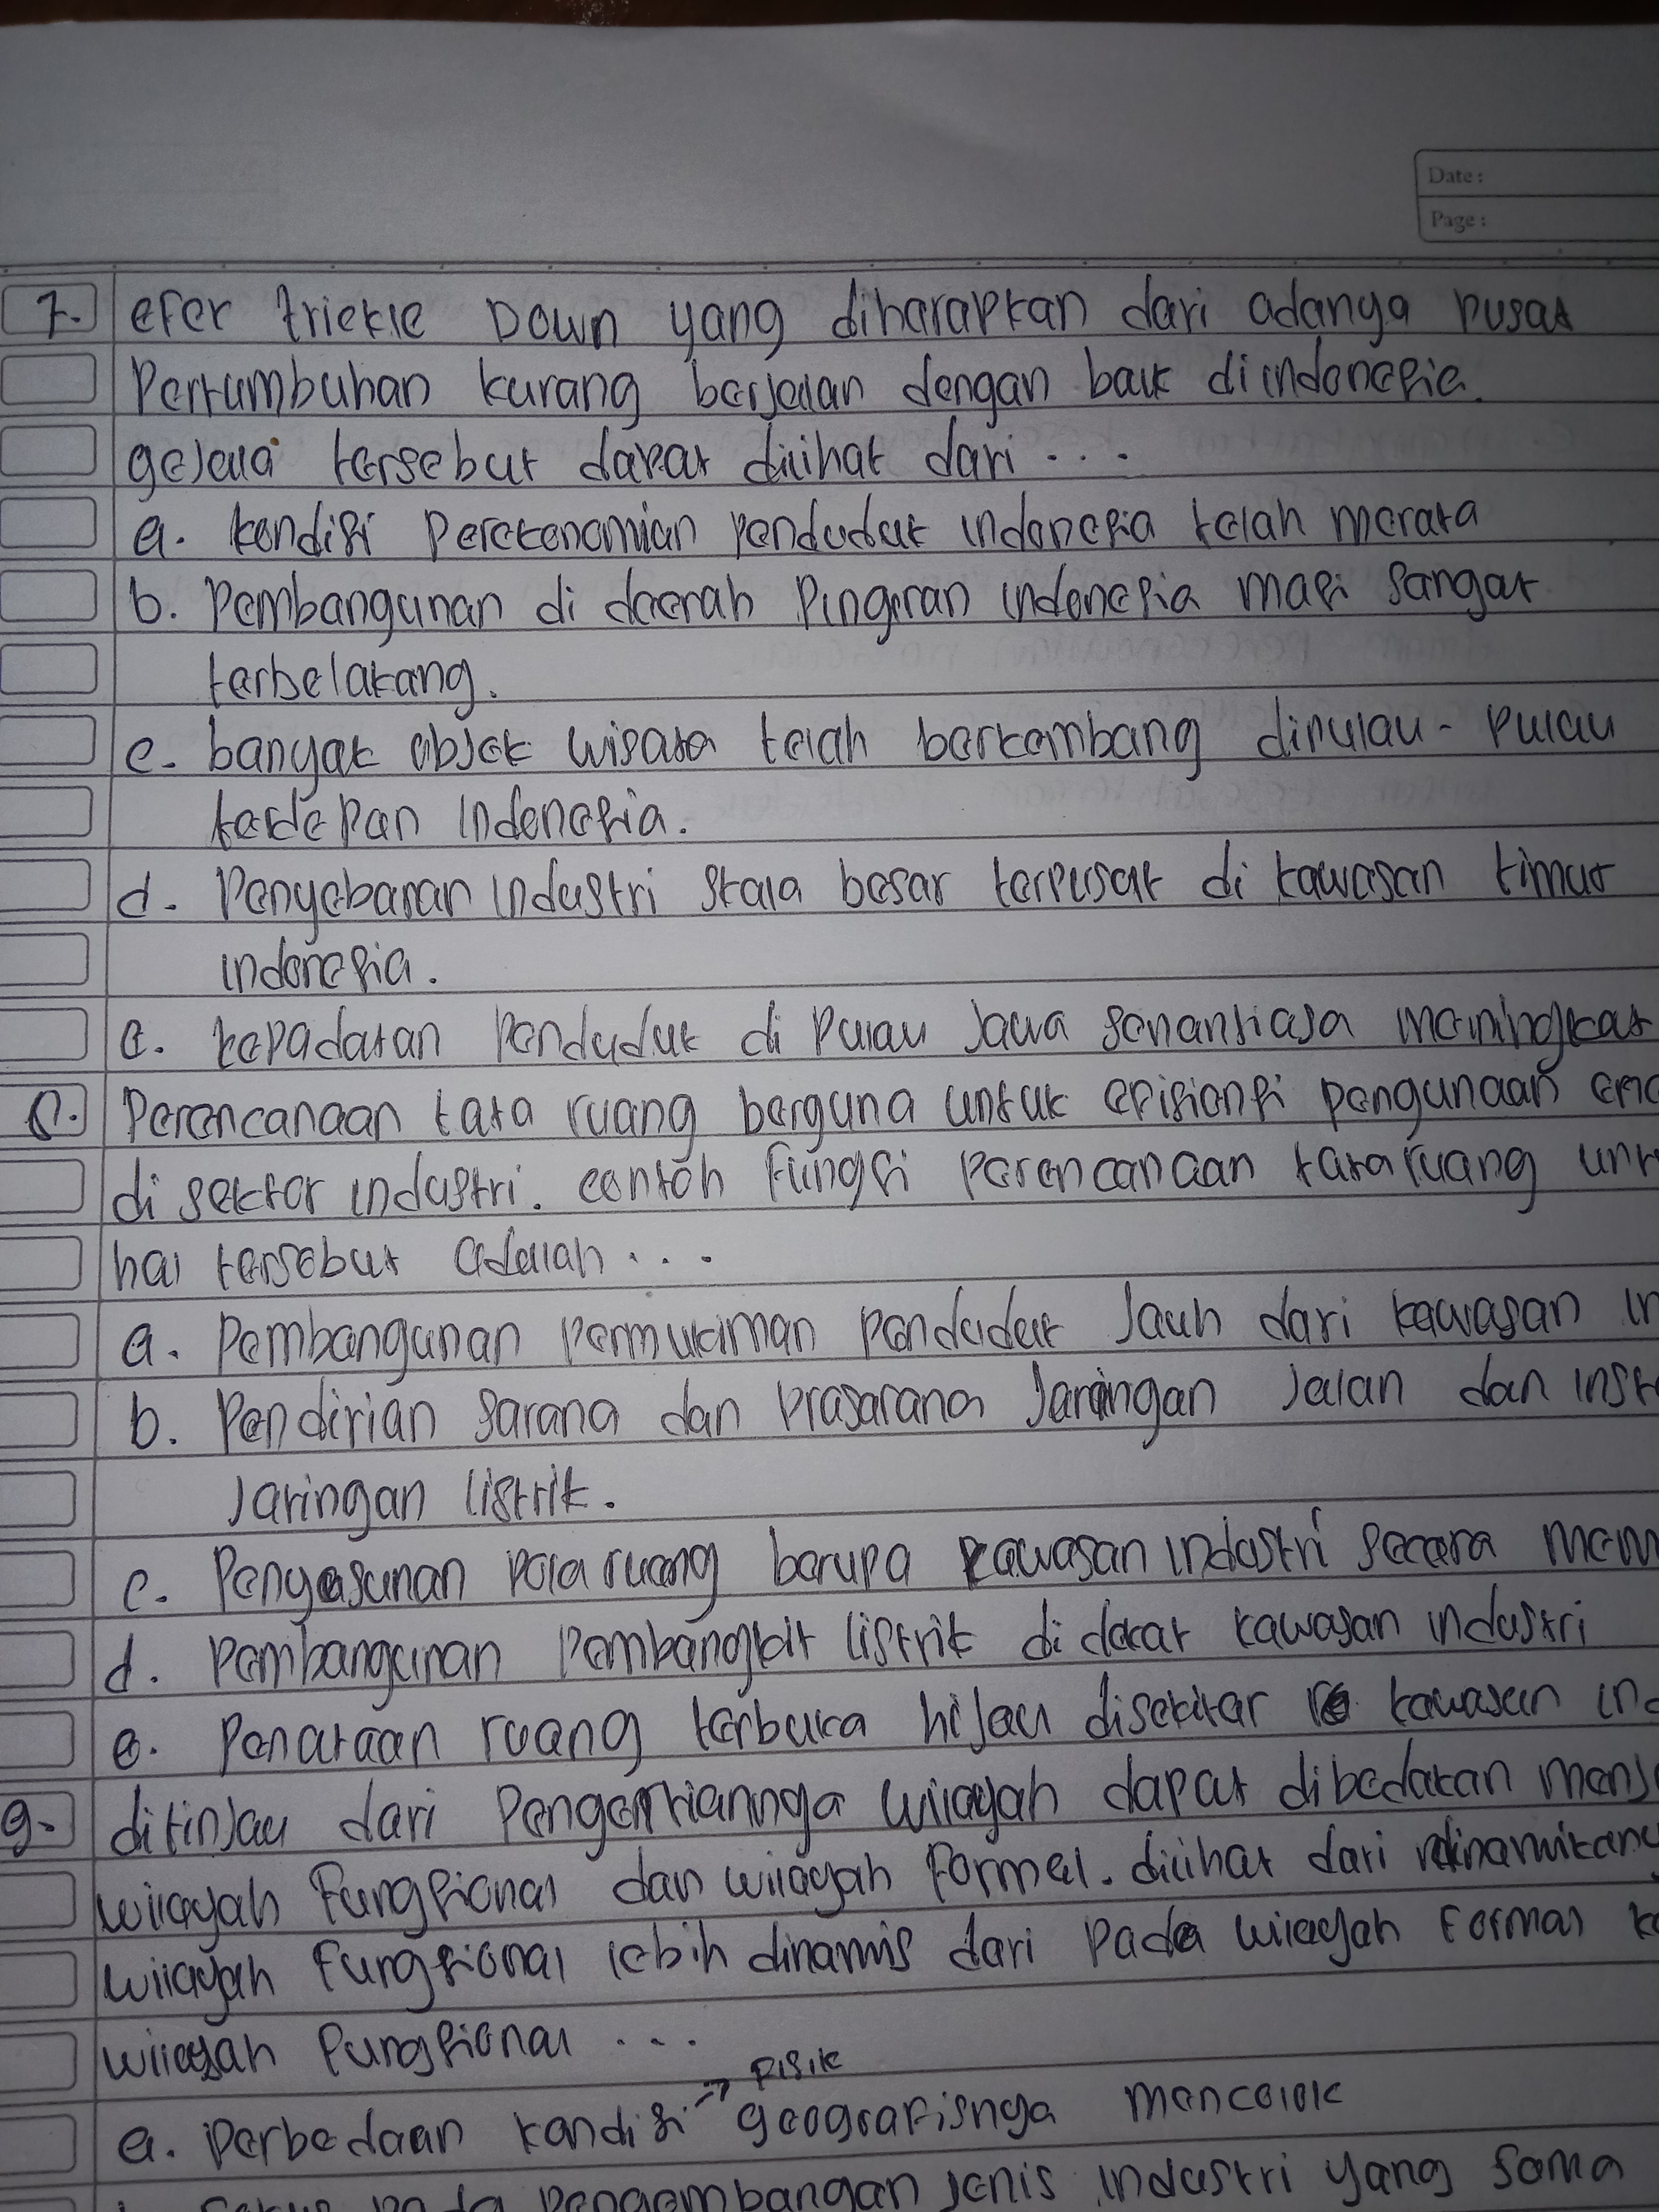 Date :
Page :
7. efer trickle Down yang diharapkan dari adanya pusat
Pertumbuhan kurang berjalan dengan baik di indonesia.
gejala tersebut dapat dilihat dari ...
a. kondisi Perekonomian penduduk indonesia telah merata
b. Pembangunan di daerah Pingiran indonesia masi sangat
terbelakang.
c. banyak objek wisata telah berkembang dipulau - pulau
terdepan indonesia.
d. Penyebaran industri skala besar terpusat di kawasan timur
indonesia.
e. kepadatan Penduduk di Pulau Jawa senantiasa meningkat
8. Perencanaan tata ruang berguna untuk efisiensi pengunaan
di sektor industri. contoh fungsi perencanaan tata ruang
hal tersebut adalah ...
a. Pembangunan permukiman penduduk jauh dari kawasan
b. Pendirian sarana dan prasarana jaringan jalan dan
jaringan listrik.
c. Penyusunan pola ruang berupa kawasan industri secara
d. Pembangunan Pembangkit listrik di dekat kawasan industri
e. Penataan ruang terbuka hijau disekitar kawasan
9. ditinjau dari Pengertiannya wilayah dapat dibedakan
wilayah fungsional dan wilayah formal. dilihat dari
wilayah fungsional lebih dinamis dari pada wilayah formal
wilayah fungsional ...
→ fisik
a. Perbedaan kondisi geografisnya mencolok
pada pengembangan jenis industri yang sama